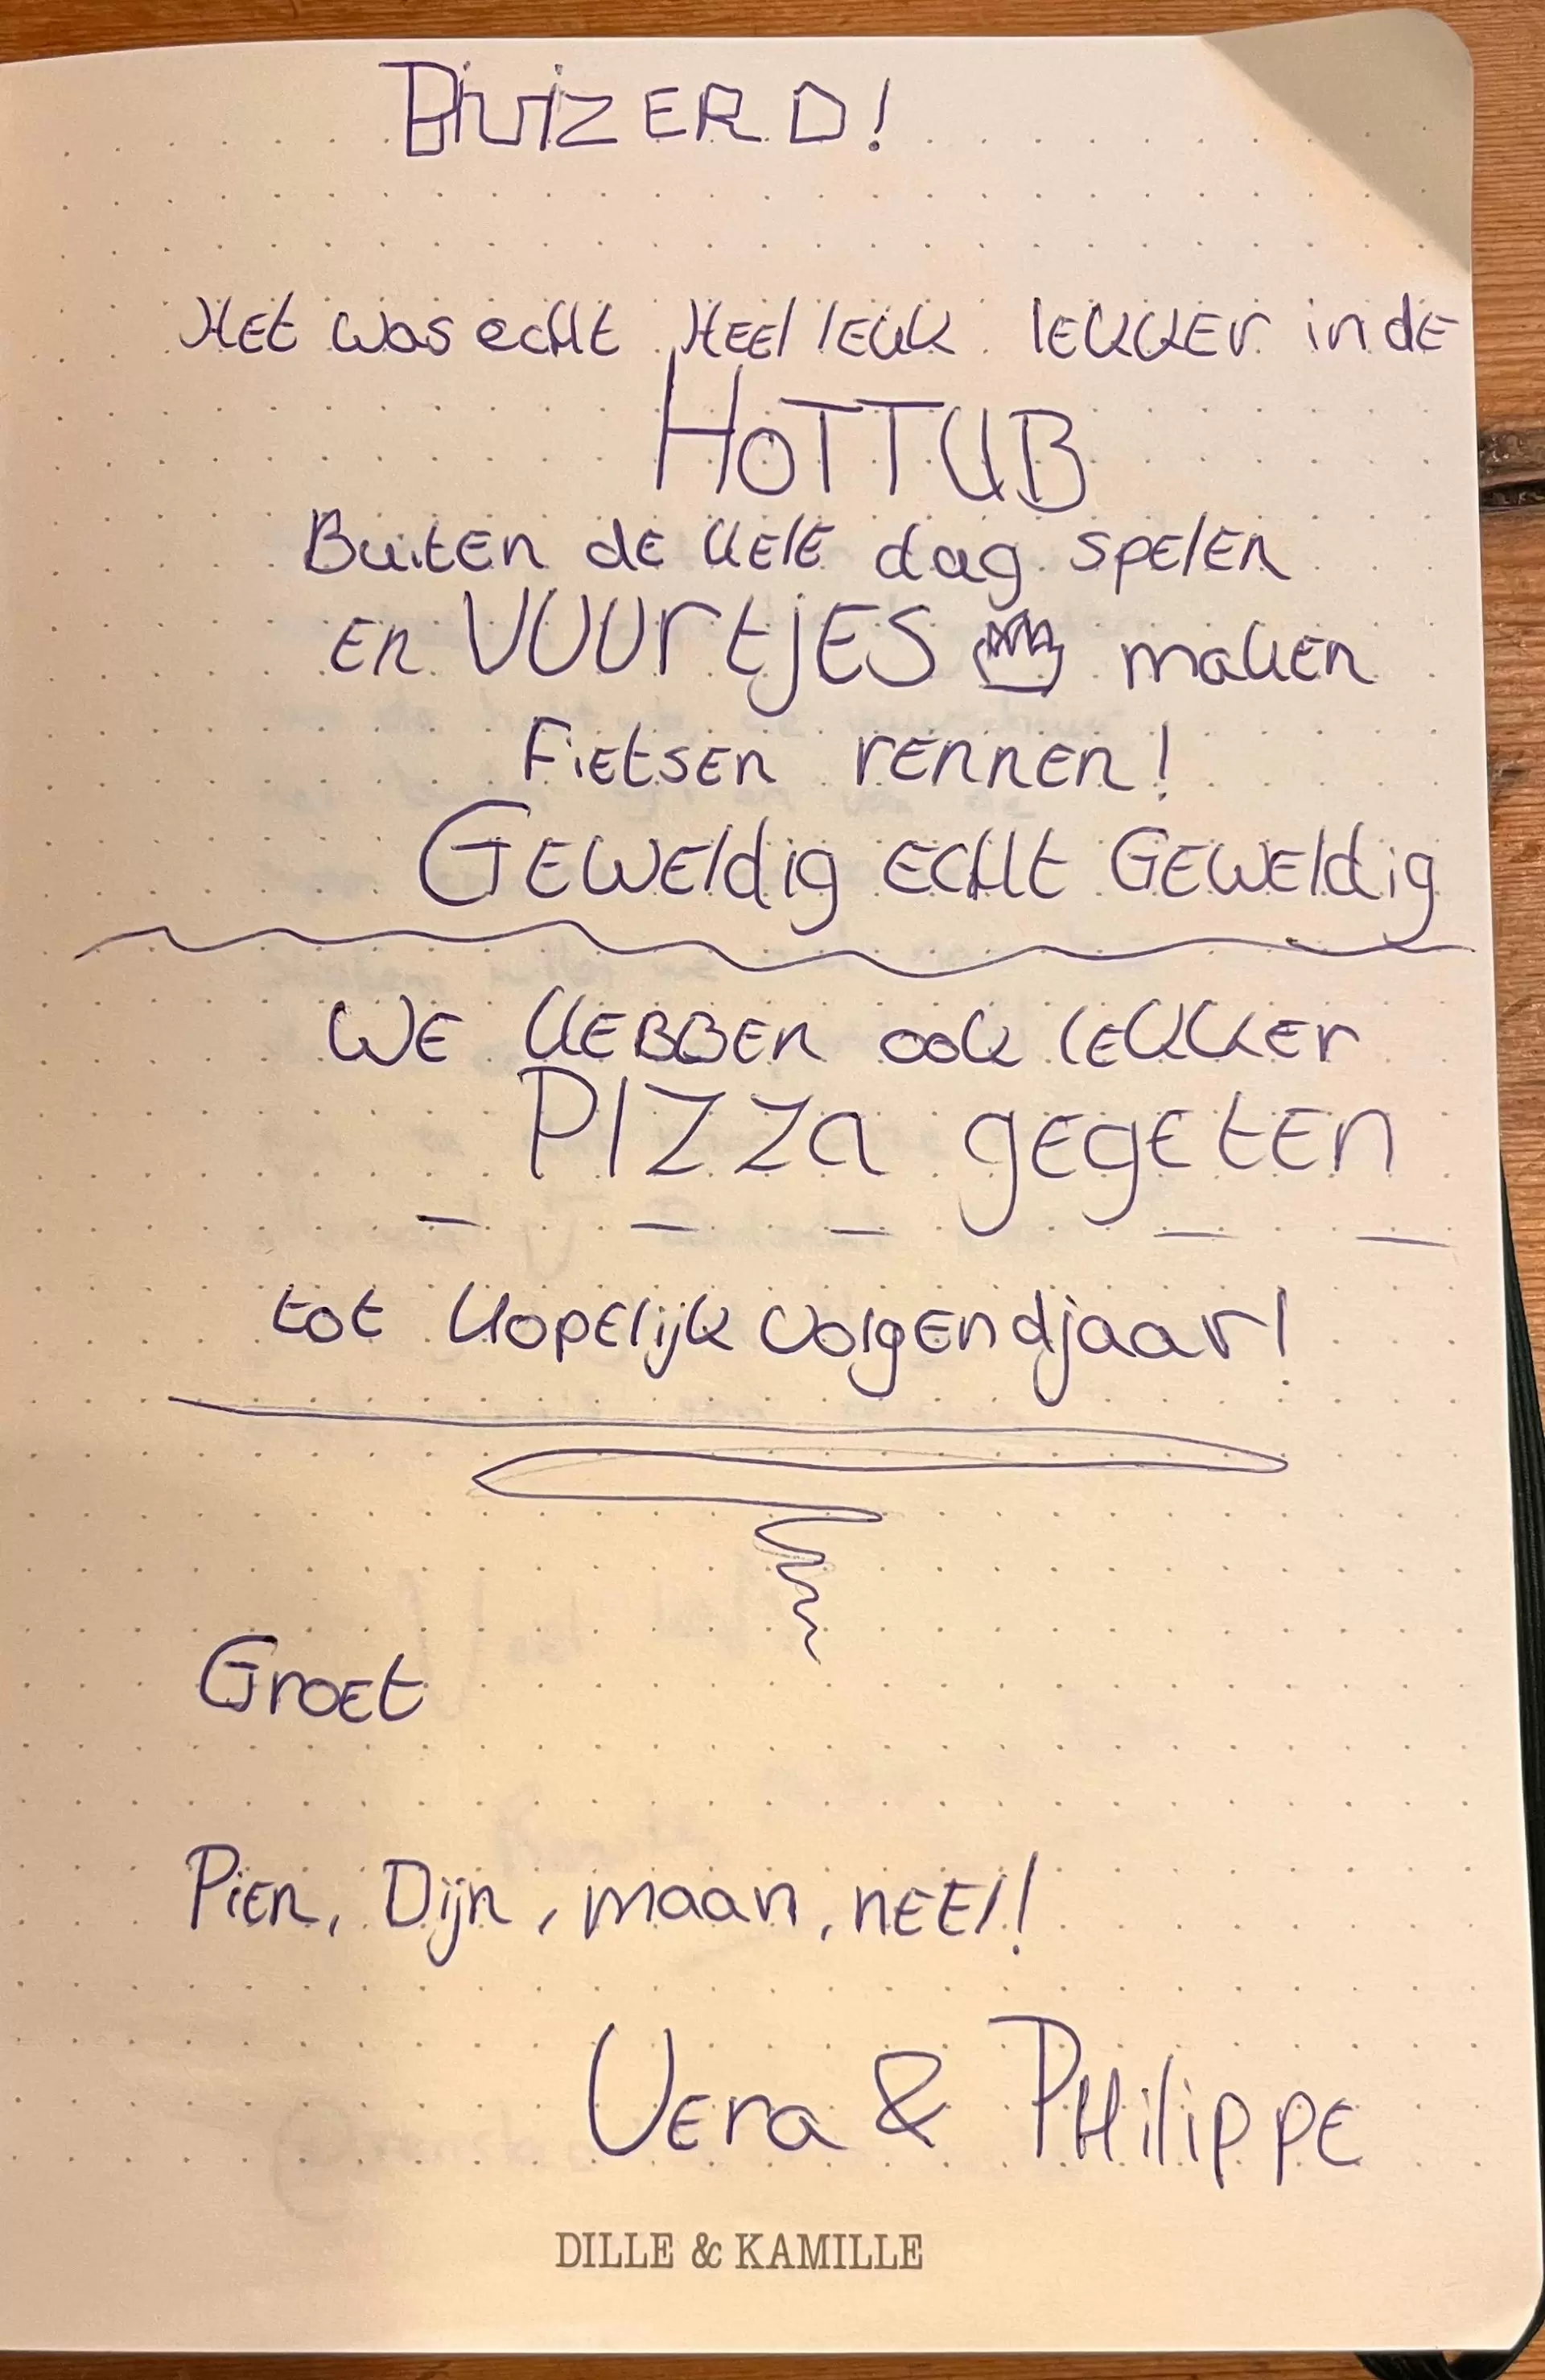 BUIZERD!
Het was echt heel leuk lekker in de
HOTTUB
Buiten de hele dag spelen
en VUURtjES maken
Fietsen rennen!
Geweldig echt Geweldig
We hebben ook lekker
PIZZa gegeten
tot hopelijk volgend jaar!
Groet
Pien, Dijn, maan, neel!
Vera & Philippe
DILLE & KAMILLE